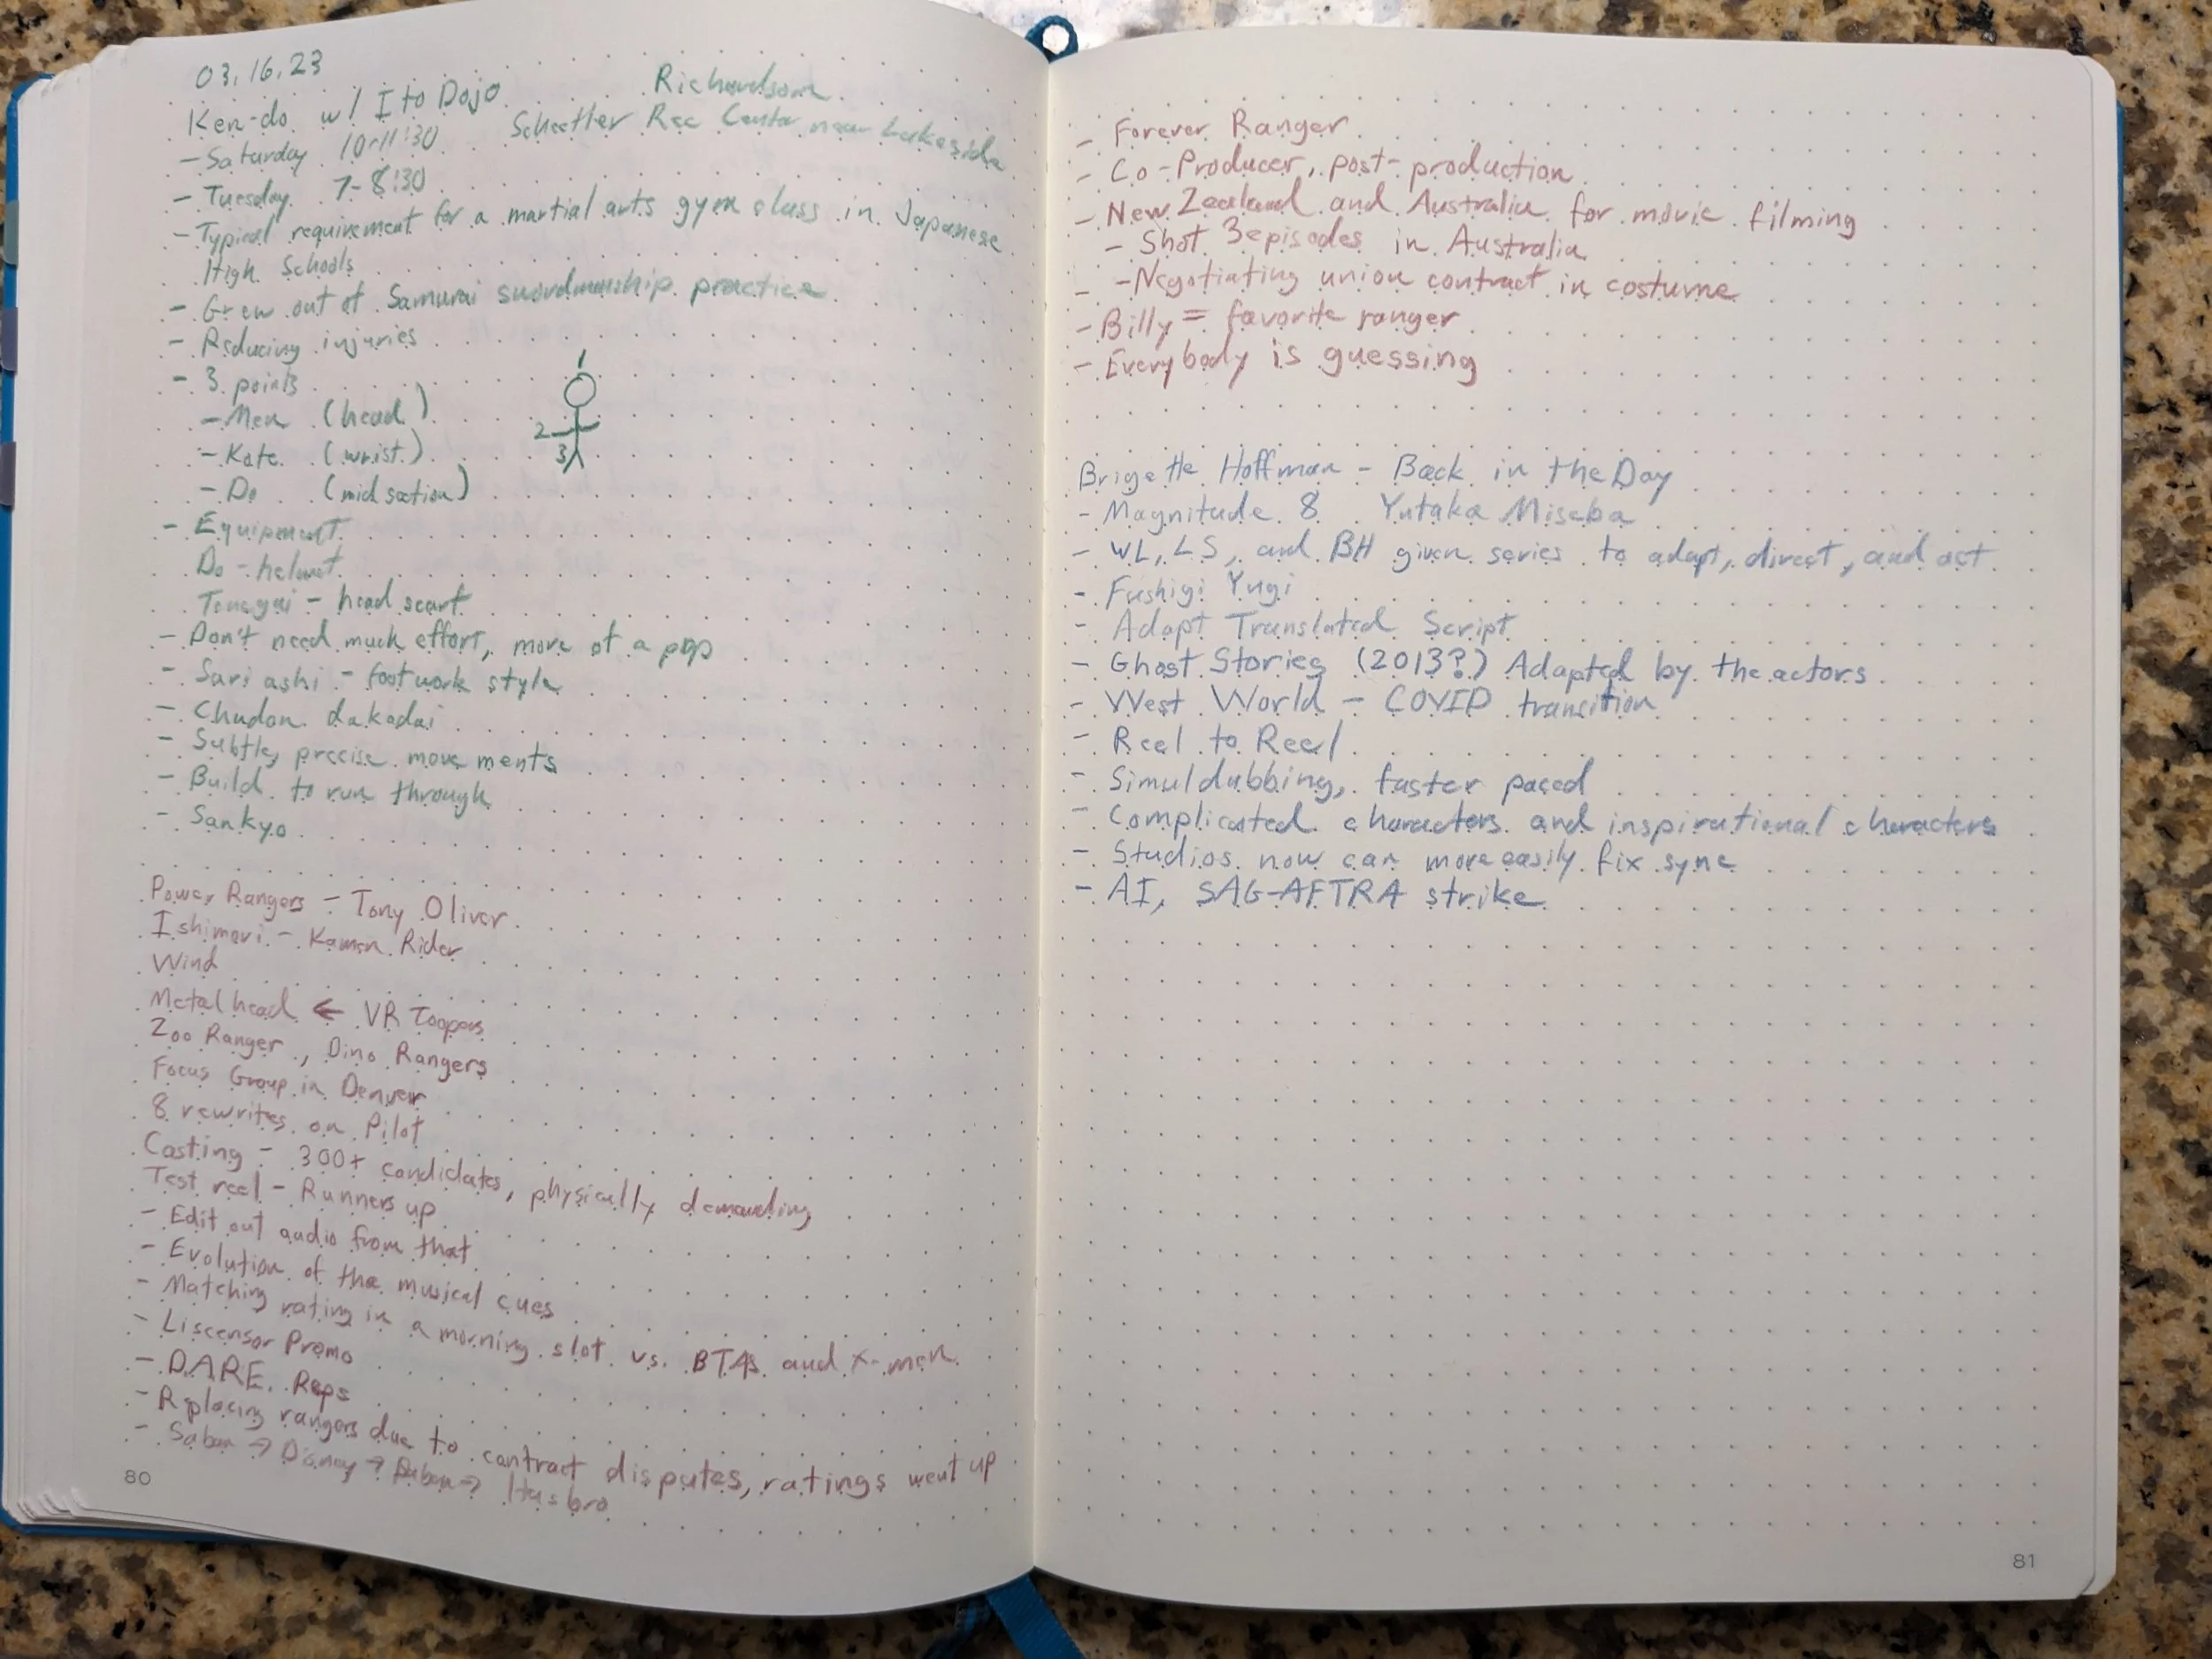 03.16.23
Ken-do w/ Ito Dojo Richardson
- Saturday 10-11:30 Rec Center near Lakeside
- Tuesday 7-8:30
- Typical requirement for a martial arts gym class in Japanese
High Schools
- Grew out of Samurai swordmanship practice
- Reducing injuries
- 3 points
1
- Men (head)
2
- Kote (wrist)
3
- Do (midsection)
- Equipment
Do - helmet
- head scarf
- Don't need much effort, more of a pop
- Suri ashi - footwork style
- Chudan dakadai
- Subtle, precise movements
- Build to run through
- Sankyo
Power Rangers - Tony Oliver
Ishimori - Kamen Rider
Wind
Metalhead ← VR Toopers
Zoo Ranger, Dino Rangers
Focus Group in Denver
8 rewrites on Pilot
Casting - 300+ candidates, physically demanding
Test reel - Runners up
- Edit out audio from that
- Evolution of the musical cues
- Matching rating in a morning slot vs. BTAS and X-men
- Liscensor Promo
- D.A.R.E. Reps
- Replacing rangers due to contract disputes, ratings went up
- Saban → Disney → Saban → Hasbro
80
- Forever Ranger
- Co-Producer, post-production
- New Zealand and Australia for movie filming
- Shot 3 episodes in Australia
- - Negotiating union contract in costume
- Billy = favorite ranger
- Everybody is guessing
Brigette Hoffman - Back in the Day
- Magnitude 8 Yutaka Miseba
- WL, LS, and BH given series to adapt, direct, and act
- Fushigi Yugi
- Adapt Translated Script
- Ghost Stories (2013?) Adapted by the actors
- West World - COVID transition
- Reel to Reel
- Simuldubbing, faster paced
- Complicated characters and inspirational characters
- Studios now can more easily fix sync
- AI, SAG-AFTRA strike
81